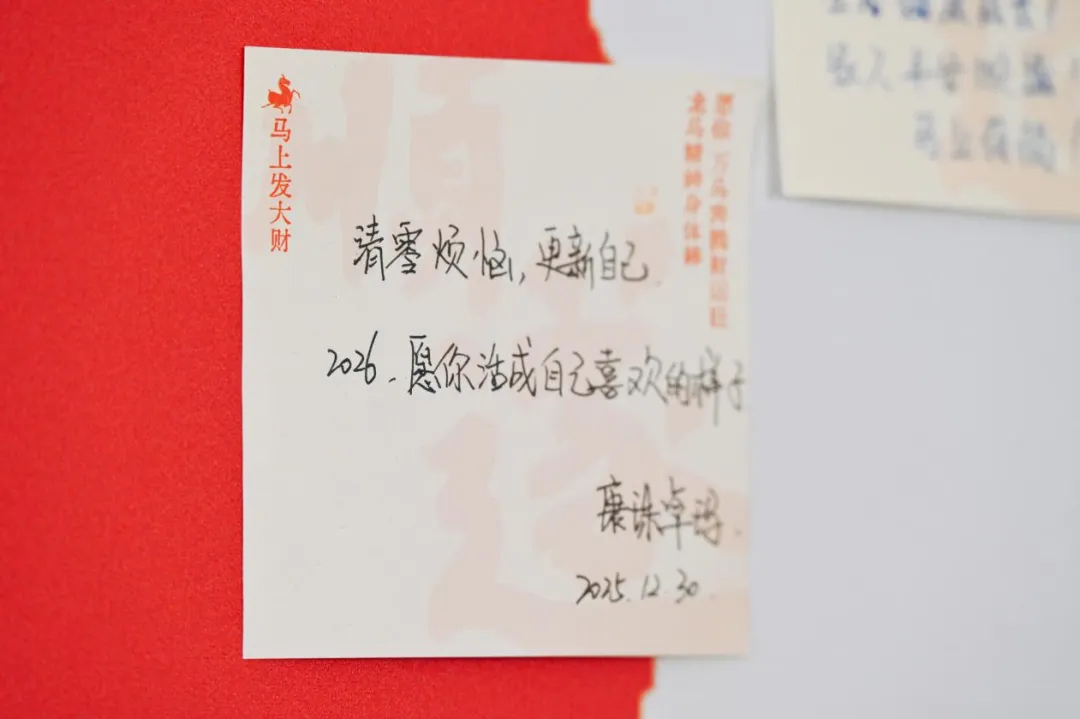 马上发大财
祝你 万马奔腾财运旺
龙马精神身体棒
清零烦恼,更新自己.
2026.愿你活成自己喜欢的样子
康
2025.12.30.
收入
马上有钱